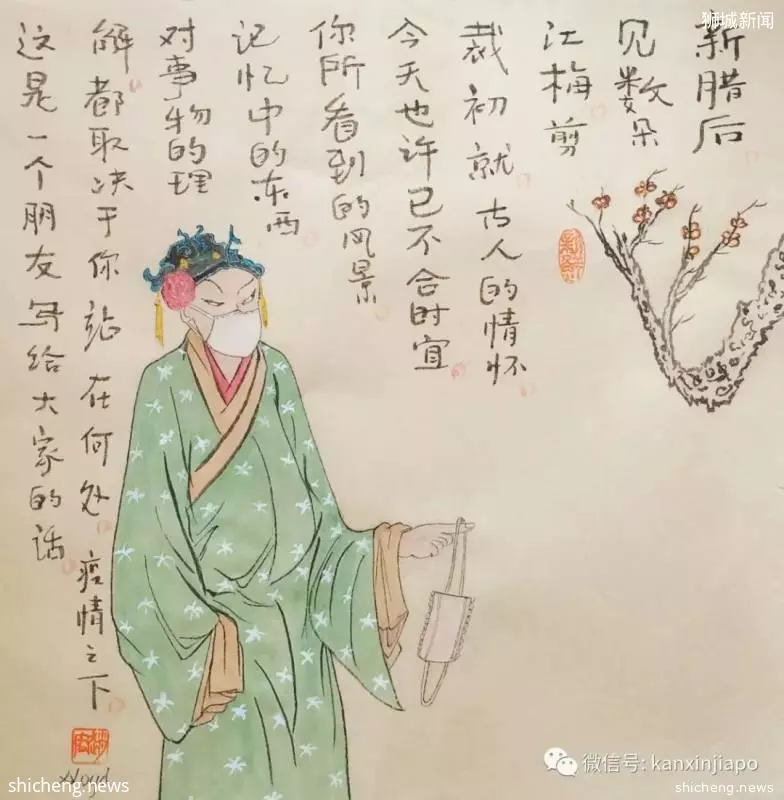 狮城新闻
新腊后
见数朵
江梅剪
裁初就 古人的情怀
今天也许已不合时宜
你所看到的风景
记忆中的东西
对事物的理
解都取决于你站在何处 疫情之下
这是一个朋友写给大家的话
Lloyd
微信号: kanxinjiapo
shicheng.news
shicheng.news